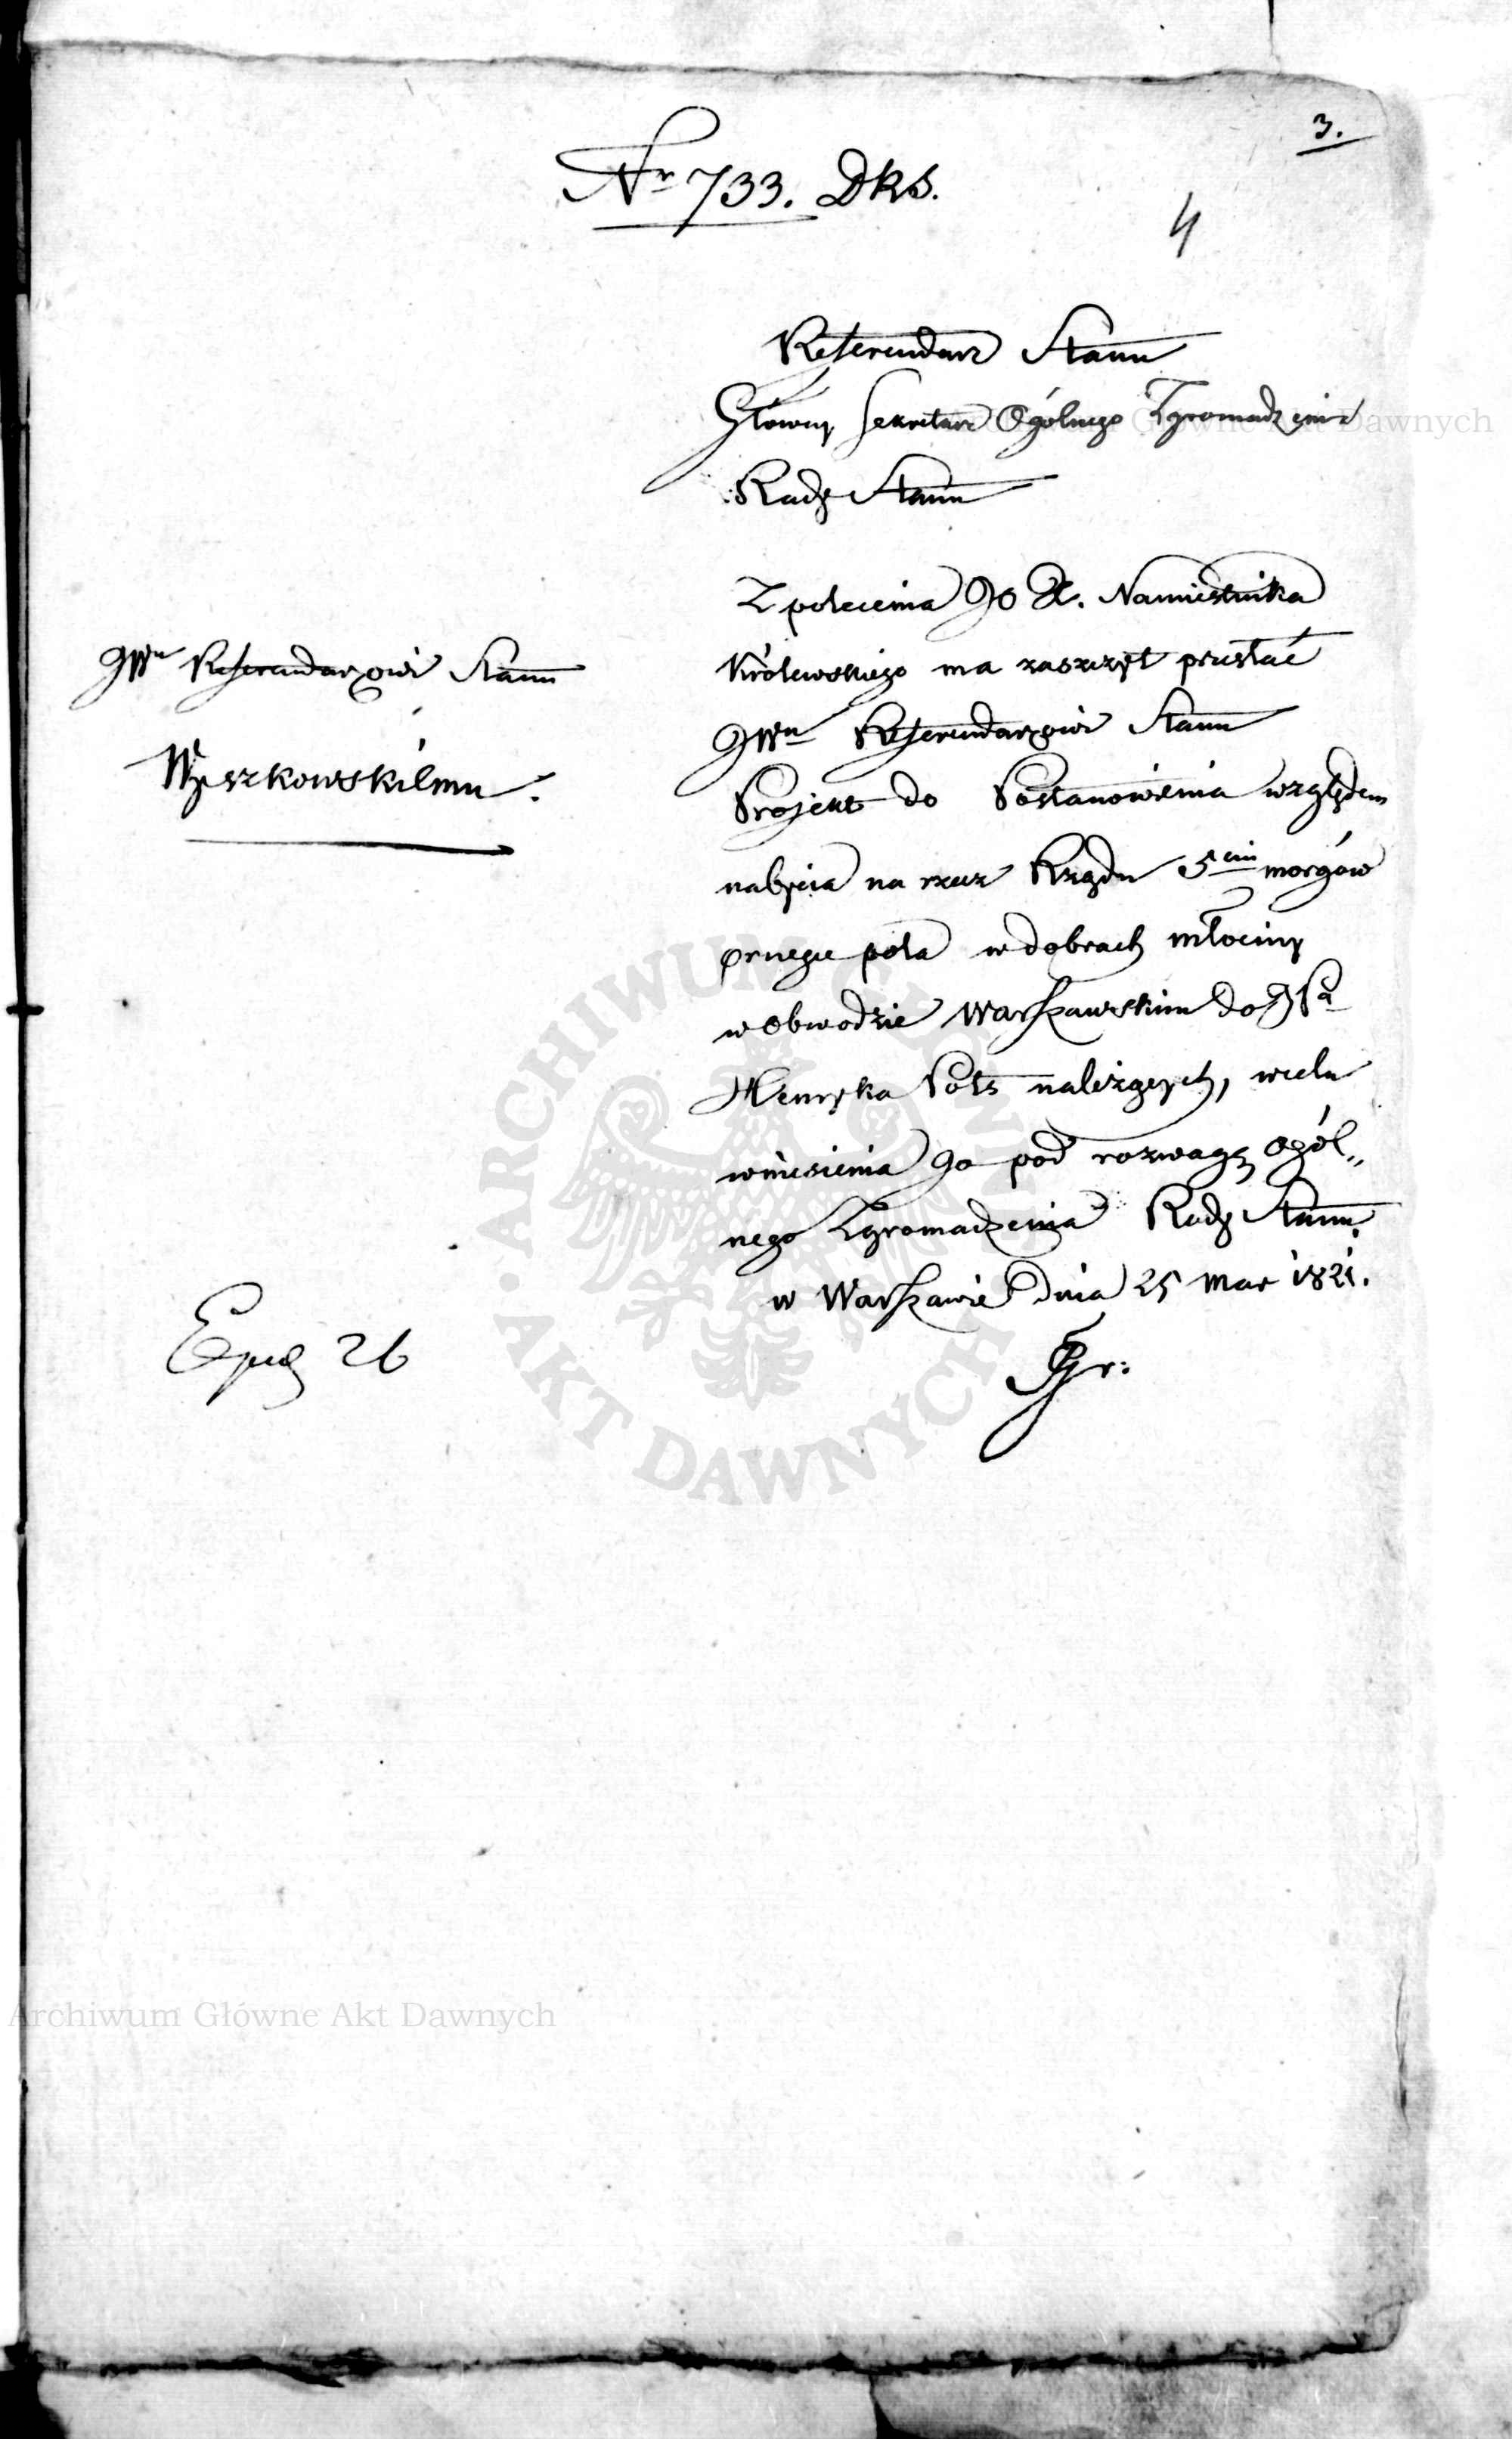 3.
Nr 733. DKS.
4
Referendarz Stanu
Główny Sekretarz Ogólnego Zgromadzenia
Rady Stanu
Z polecenia JO X. Namiestnika
Królewskiego ma zaszczyt przesłać
JWu Referendarzowi Stanu
Projekt do Postanowienia względem
nabycia na rzecz Rządu 5ciu morgów
ornego pola w dobrach Młociny
w Obwodzie Warszawskim do JPa
Henryka Pots należących, w celu
wniesienia go pod rozwagę Ogól„
nego Zgromadzenia Rady Stanu.
w Warszawie dnia 25 Mar 1821.
JWu Referendarzowi Stanu
Wyszkowskiemu.
26
ARCHIWUM GŁÓWNE AKT DAWNYCH
Archiwum Główne Akt Dawnych
Archiwum Główne Akt Dawnych